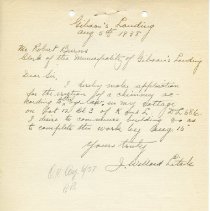 Gibson's Landing
Aug 5th 1938
Mr Robert Burns
Clerk of the Municipality of Gibson's Landing
Dear Sir,
I hereby make application
for the erection of a chimney
in my cottage
on Lot 12 Bl 3 of D.L. 686.
I desire to commence building so as
to complete the work by Aug. 15
Yours truly
J. Willard
O.K. Aug